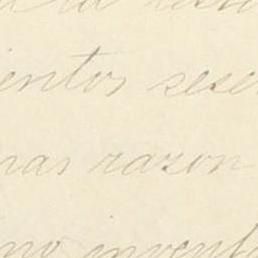 ientos sese
mas razon
no invent